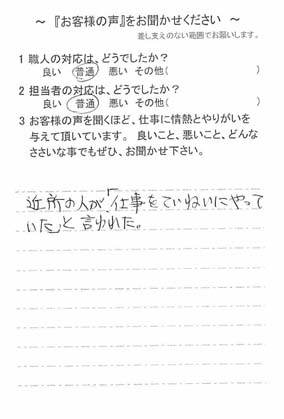 ～『お客様の声』をお聞かせください～
差し支えのない範囲でお願いします。
1 職人の対応は、どうでしたか？
良い 普通 悪い その他( )
2 担当者の対応は、どうでしたか？
良い 普通 悪い その他( )
3 お客様の声を聞くほど、仕事に情熱とやりがいを
与えて頂いています。 良いこと、悪いこと、どんな
ささいな事でもぜひ、お聞かせ下さい。
近所の人が、「仕事をていねいにやって
いた」と言われた。